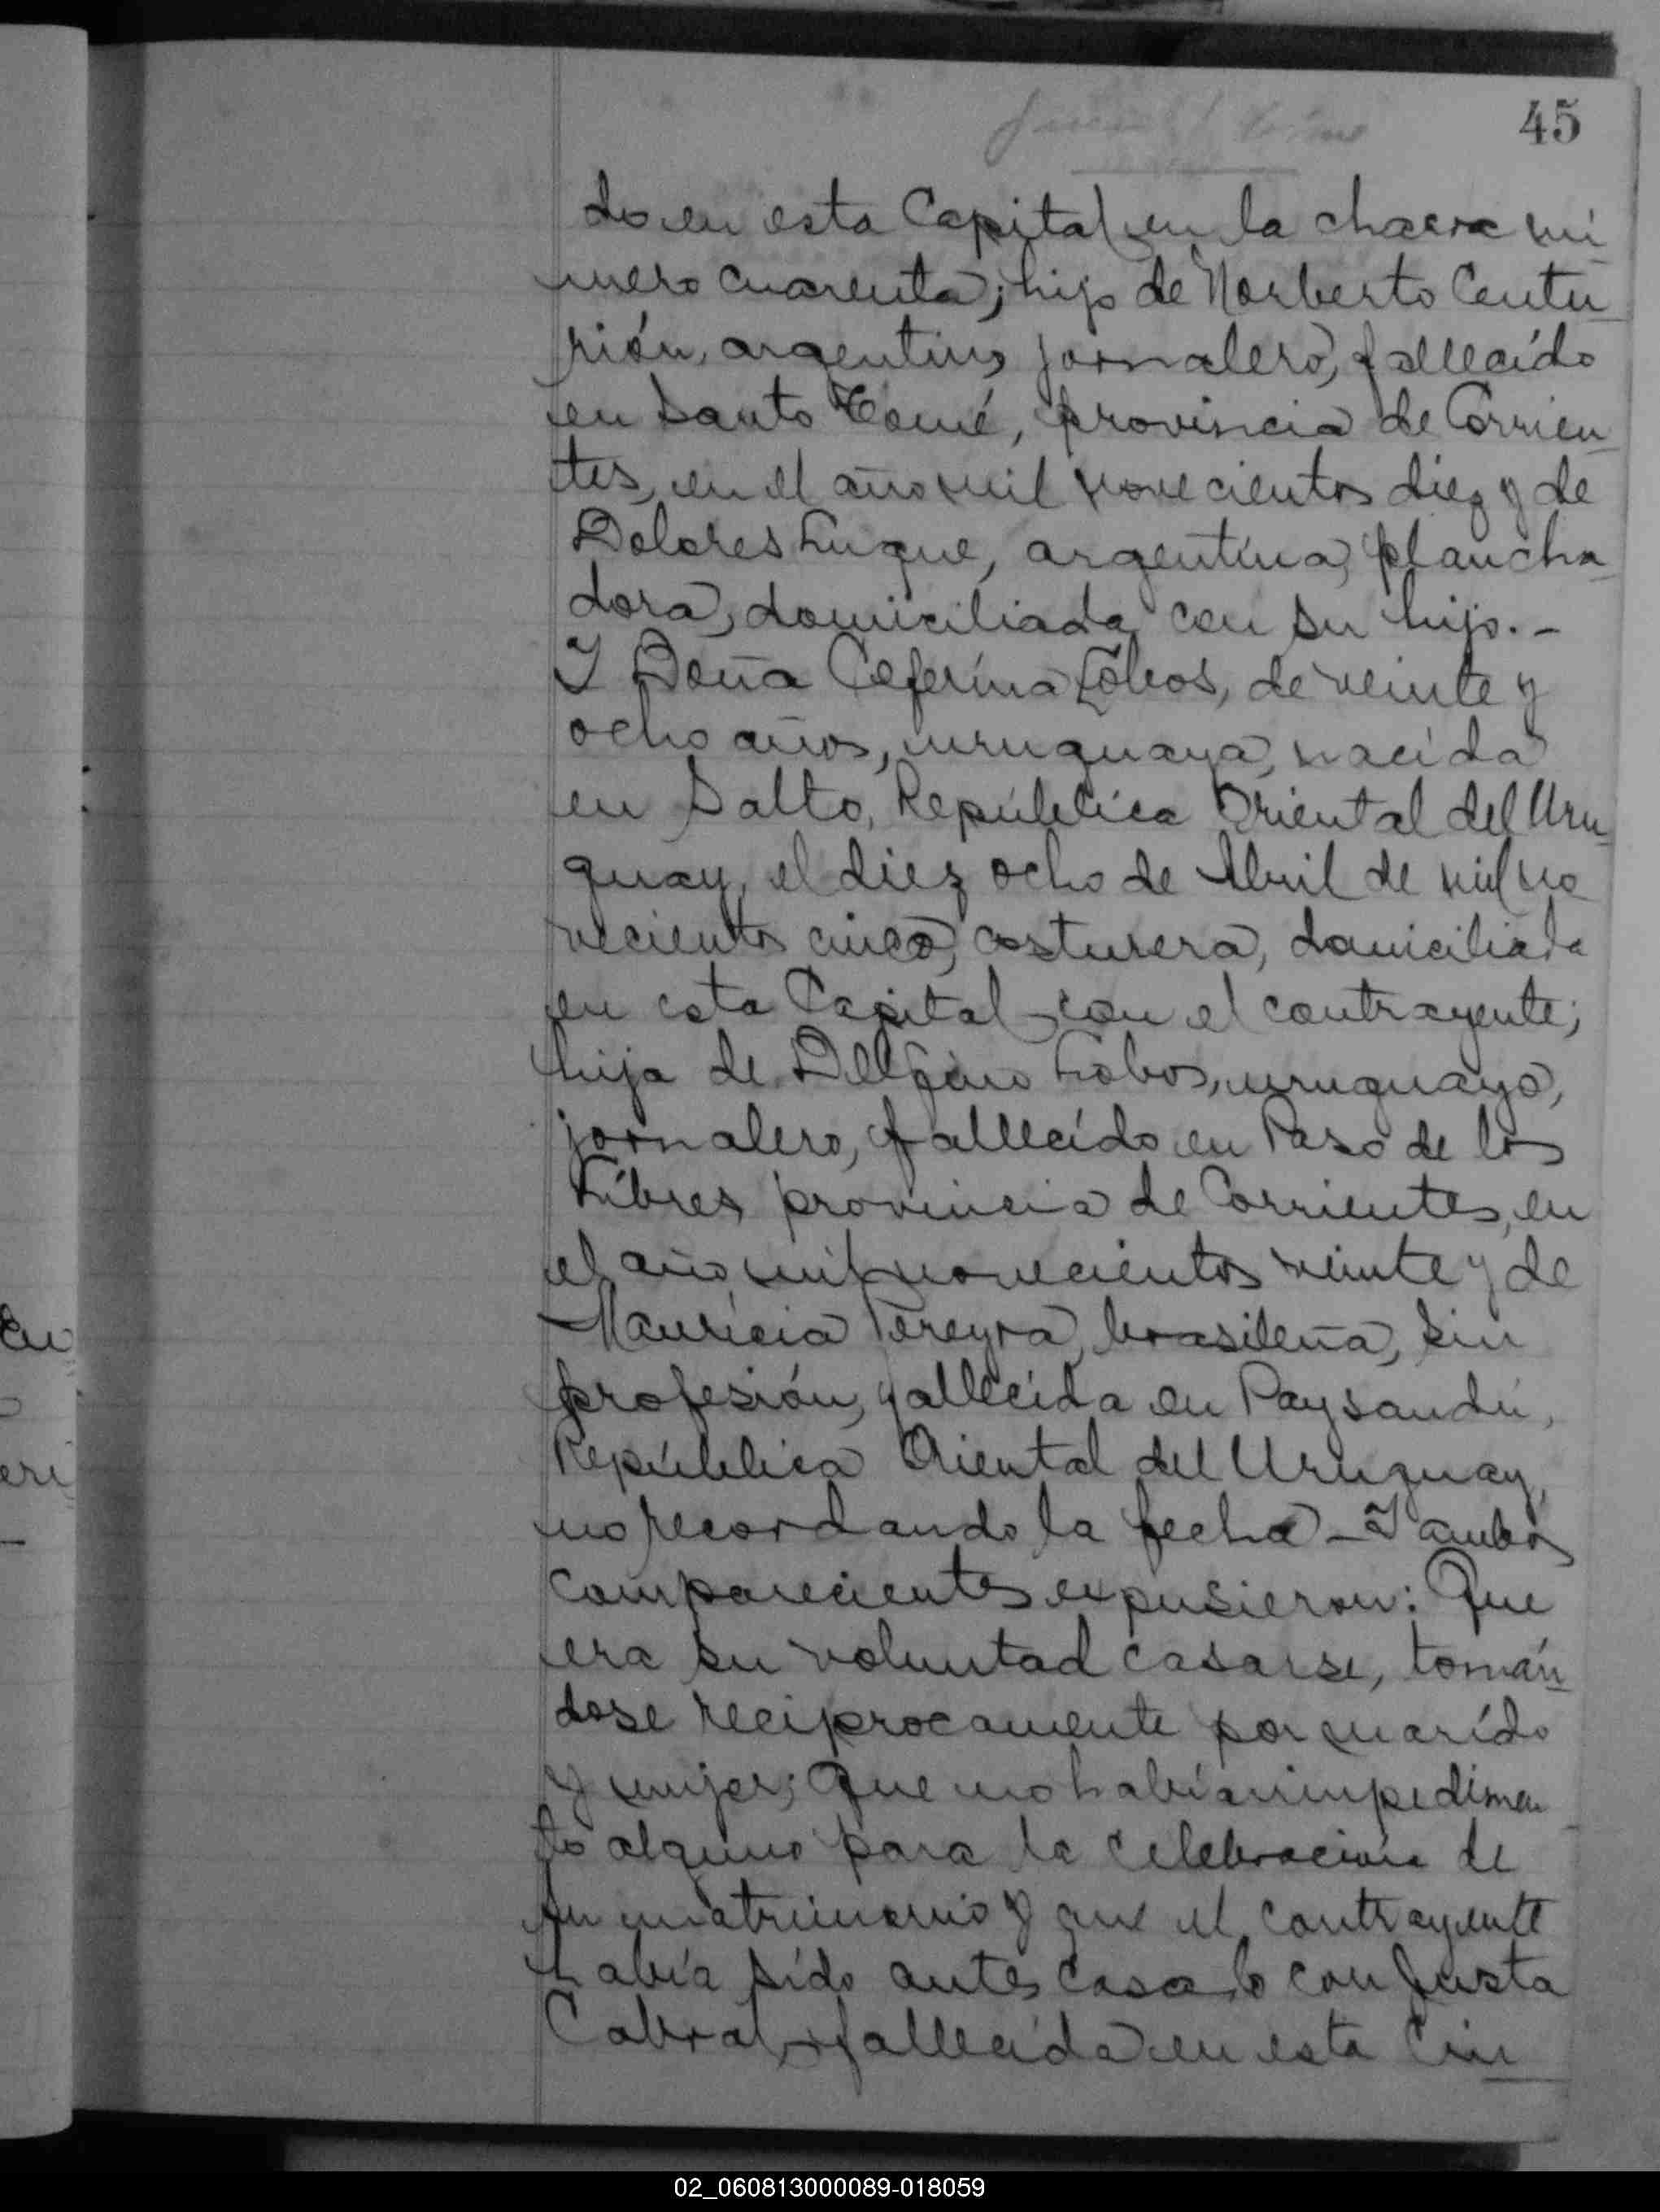 45
do en esta Capital en la chacra nú
mero cuarenta; hijo de Norberto Centu
rión, argentino, jornalero, fallecído
en Santo Tomé, provincia de Corrien
tes, en el año mil novecientos diez y de
Dolores Luque, argentina, plancha
dora, domiciliada con su hijo. -
Y Doña Ceferína Lobos, de veinte y
ocho años, uruguaya, nacída
en Salto, República Oriental del Uru
guay, el diez ocho de Abril de mil no
vecientos cinco, costurera, domiciliada
en esta Capital con el contrayente;
hija de Delfino Lobos, uruguayo,
jornalero, fallecído en Paso de los
Líbres provincia de Corrientes, en
el año mil novecientos veinte y de
Maurícia Pereyra, brasileña, sin
profesión, fallecída en Paysandú,
República Oriental del Uruguay,
no recordando la fecha - Y ambos
comparecientes expusieron: Que
era su voluntad casarse, tomán
dose reciprocamente por marído
y mujer; Que no habían impedimen
to alguno para la celebración de
su matrimonio y que el contrayente
había sído antes casado con Justa
Cabral, fallecída en esta Ciu
En
eri
02_060813000089-018059